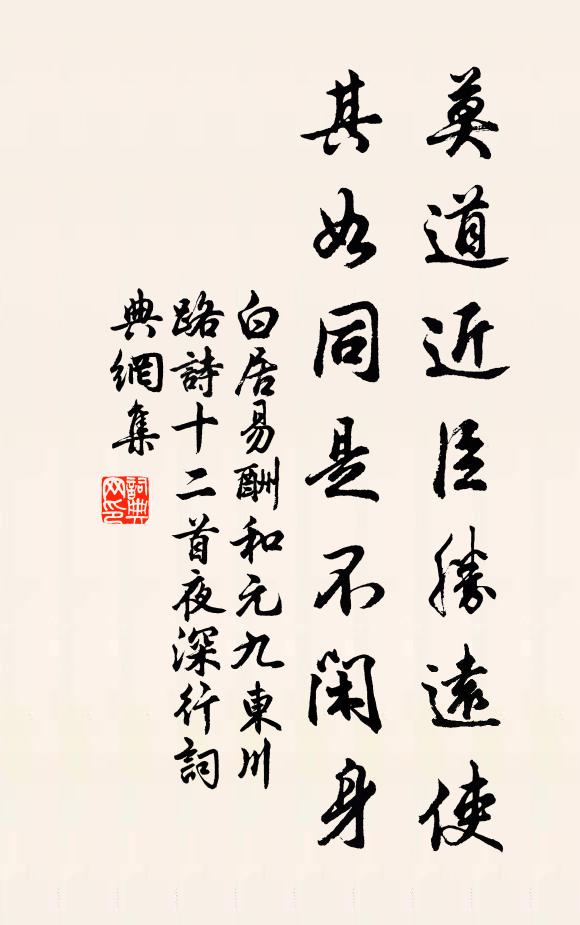 莫道近臣勝遠使
其如同是不閑身
白居易酬和元九東川
路詩十二首夜深行詞
典網集
詞典網印